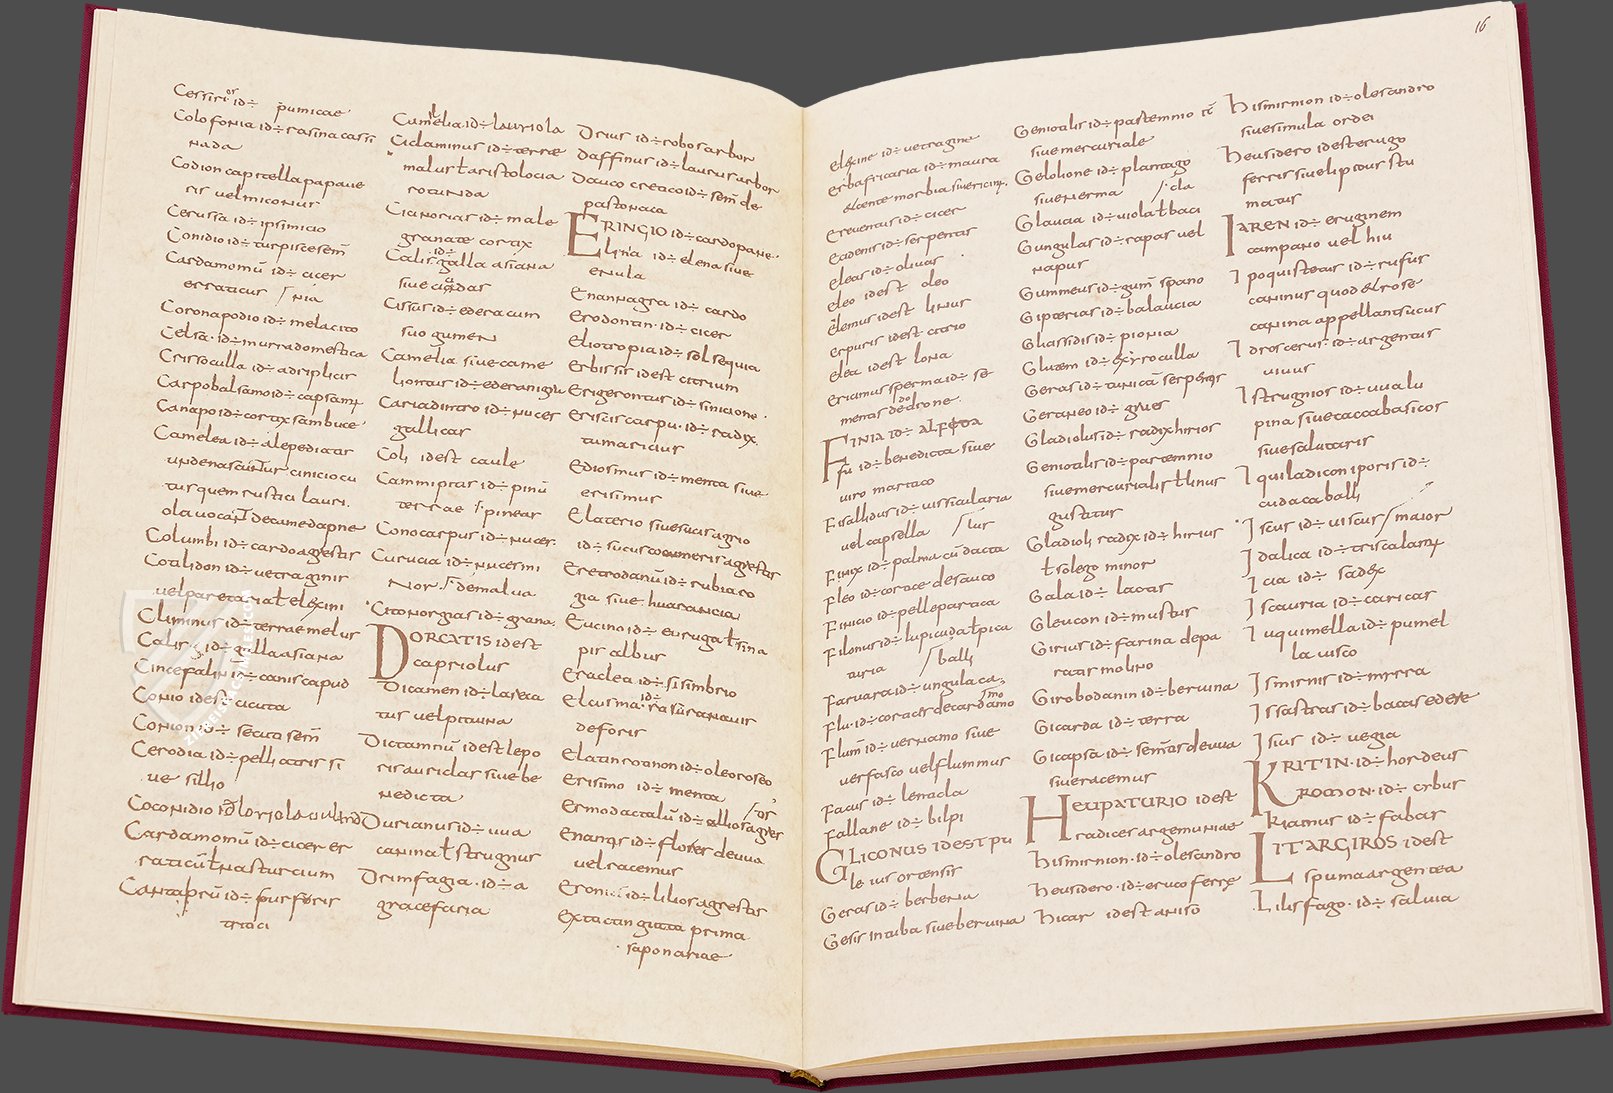 Cessiros id÷ pumicae
Colofonia id÷ rasina cassi
nada
Codion capitella papaue
ris uel miconius
Cerusia id÷ ipsimicio
Conidio id÷ turpisce sem̄
Cardamomū id÷ cicer
erraticus / nia
Coronapodio id÷ melacito
Celsa· id÷ murra domestica
Crissoculla id÷ adriplicis
Carpobalsamo id÷
Canapo id÷ cortix sambuce
Camelea id÷ alepediatas
unde nascuntur cinicio cu
tus quem rustici lauri.
ola uocant
Columbi id÷ cardo agrestis
Cotilidon id÷ uetraginis
uel paretaria ł elexini
Climinus id÷ terrae melus
Calis id÷ galla asiana
Cincefalin id÷ canis capud
Conio idest cicuta
Conion id÷ secuta sem̄
Cerodia id÷ pelli atris si
ue sillio
Coconidio
Cardamomū id÷ cicer er
raticū ł nasturcium
id÷ furfuris
tritici
Camelia id÷ lauriola
Ciclaminus id÷ terrae
malus ł aristolocia
rotunda
Cianorias id÷ male
granate cortix
Calis id÷ galla asiana
siue
Cissus id÷ edera cum
suo gumen
Camelia siue came
liontas id÷ edera nigra
Cariadintro id÷ nuces
gallicas
Coli idest caule
Cammipitas id÷ pinū
terrae / pineas
Conocarpus id÷ nuces
Curucia id÷ nuces mi
nor / de malua
Citonorgias id÷ grana.
DORCATIS idest
capriolus
Dicamen id÷ laseca
tus uel pitauna
Dictamnū idest lepo
ris auriclas siue be
nedicta
Durianus id÷ uua
canina ł strugnus
Drimfagia· id÷ a
gracefaria
Drius id÷ robos arbor
Daffinus id÷ laurus arbor
Dauco cretico id÷ sem̄ de
pastonaca
ERINGIO id÷ cardo pane·
Elina id÷ elena siue
enula
Enannagra id÷ cardo
Erodontin· id÷ cicer
Eliotropia id÷ solsequia
Erbissis idest citrium
Erigerontus id÷ sinicione·
Eriscis carpu· id÷ radix
tamaricius
Ediosmus id÷ menta siue
erisimus
Elaterio siue sucis agrio
id÷ sucus cocumeris agrestis
Eretrodanū id÷ rubia ro
gia siue huarancia
Eucino id÷ eu ruga ł sina
pis albus
Eraclea id÷ sisimbrio
Elcisma· id÷ rasura nauis
deforis
Elatin roanon id÷ oleo roseo
Erisimo id÷ menta
Ermodactalū id÷ allios agres / tos
Enanas id÷ flores de uua
uel racemus
id÷ lilios agrestis
Extacian giaza prima
saponariae
16
Elexine id÷ uetragine
Erba fricaria id÷ maura
Ereuentus id÷ cicer
Eadenis id÷ serpentis
Eleas id÷ oliuas
Eleo idest oleo
Elemus idest linus
Erpuris idest citrio
Elea idest lona
Eriamus sperma id÷ se
mentas de drone.
FINIA id÷ alfita
Fu id÷ benedicta siue
uiro martaco
Fisallidus id÷ uissicularia
uel capsella / lus
Finix id÷ palma cū dacta
Fleo id÷ corace de sauco
Finicio id÷ pelle partica
Filonus id÷ lupicuda ł pica
turia / balli
Farfara id÷ ungula ca
Flu· id÷ coracis de cardamomo
Flum̄ id÷ uernamo siue
uerfasco uel flummus
Facus id÷ lenticla
Fallane id÷ bilpi
GLICONUS IDEST pu
leius ortensis
Geras id÷ berbena
Gesis intuba siue beruina
Genioalis id÷ pastemnio
siue mercuriale
Gelolione id÷ plantago
siue nerma / cla
Glaucia id÷ uiola ł baci
Gungulas id÷ rapas uel
napus
Gummeus id÷ gum̄ spano
Gipterias id÷ balaucia
Gliassidis id÷ pionia
Glutem id÷ exiroculla
Geras id÷ tunicā serpentis
Geraneo id÷ grues
Gladiolus id÷ radix hirios
Geniotalis id÷ partemnio
siue mercurialis ł linus
gustatus
Gladioli radix id÷ hirius
ł solego minor
Gala id÷ lactas
Gleucon id÷ mustus
Girius id÷ farina de pa
ratas molino
Girobodanin id÷ beruina
Gicarda id÷ terra
Gicapsa id÷ sem̄tis de uua
siue racemus
HEUPATURIO idest
radices argemuniae
Hismirnion· id÷ olesandro
Heusidero· id÷ eruco ferre
Hicas idest aniso
Hismirnion id÷ olesandro
siue simula ordei
Heusidero idest erugo
ferris siue lipidus stu
matis
IAREN id÷ eruginem
campano uel hiu
Ipoquisteas id÷ rufus
caninus quod et rose
canina appellant sucus
Idroscerus· id÷ argentus
uiuus
Istrugnios id÷ uua lu
pina siue caccabasicos
siue salutaris
Iquiladiconiporis id÷
cuda caballi
Iscus id÷ uiscus / maior
Idalica id÷
Icia id÷ sadex
Iscauria id÷ caricas
Iuquimella id÷ pumel
la uisco
Ismirnis id÷ mirra
Issastras id÷ bacas edere
Isius id÷ uegia
KRITIN· id÷ hordeus
Kromon· id÷ cibus
Kiamus id÷ fabas
LITARGIROS idest
spuma argentea
Lilisfago· id÷ saluia